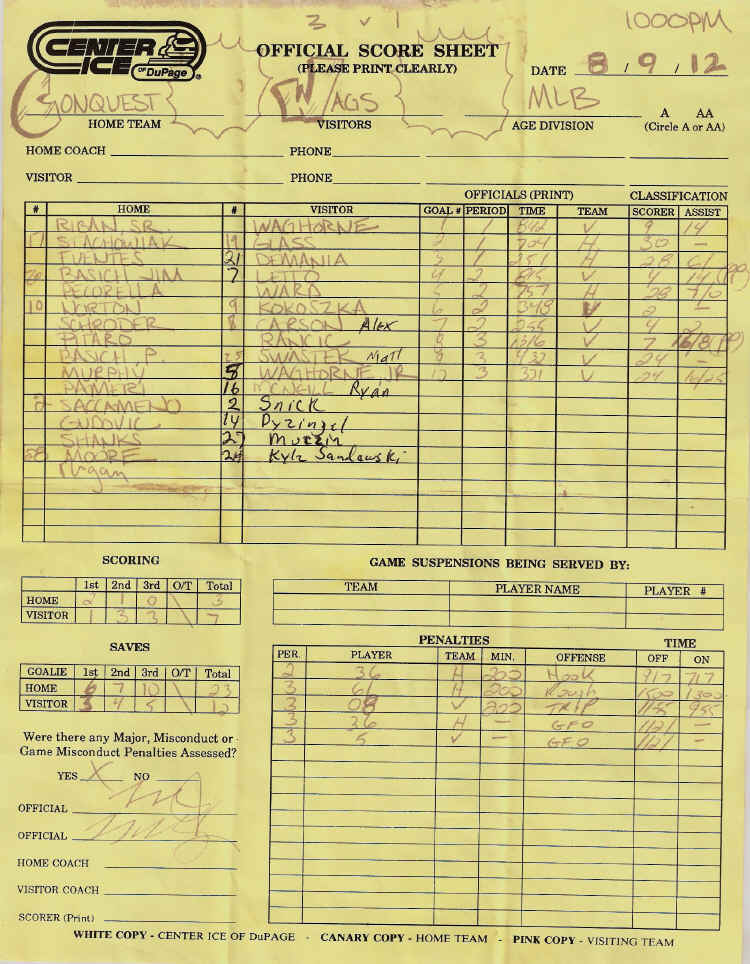 3 v 1
1000PM
CENTER ICE OF DuPage
OFFICIAL SCORE SHEET
(PLEASE PRINT CLEARLY)
DATE 8 / 9 / 12
CONQUEST WAGS MLB
HOME TEAM VISITORS AGE DIVISION A AA
(Circle A or AA)
HOME COACH PHONE
VISITOR PHONE
OFFICIALS (PRINT) CLASSIFICATION
# HOME # VISITOR GOAL # PERIOD TIME TEAM SCORER ASSIST
RIBAN, SR. WAGHORNE 1 1 V 9 14
17 STACHOWIAK 19 GLASS 2 1 704 H 30 —
FUENTES 21 DEMANIA 3 1 251 H 28 61
BASICH JIM 7 LETTO 4 2 V 4 (PP)
PECORELLA WARD 5 2 757 H 28 7/0
10 NORTON 9 KOKOSZKA 6 2 348 V 2 —
SCHRODER 8 CARSON Alex 7 2 255 V 4 2
PITARO RANCIC 8 3 1316 V 7 16/8 (PP)
BASICH, P. 25 SWASTEK Matt 9 3 932 V 24 —
MURPHY 8 WAGHORNE, JR 10 3 331 V 24 16/25
PAMERI 16 MCNEILL Ryan
2 SACCAMENO 2 Snick
GUDOVIC 14 Dyzingel
SHANKS 27 Murzin
58 MOORE 24 Kyle Sandauski
SCORING
1st 2nd 3rd O/T Total
HOME 2 1 0 3
VISITOR 1 3 3 7
GAME SUSPENSIONS BEING SERVED BY:
TEAM PLAYER NAME PLAYER #
SAVES
GOALIE 1st 2nd 3rd O/T Total
HOME 6 7 10 23
VISITOR 3 4 5 12
PENALTIES TIME
PER. PLAYER TEAM MIN. OFFENSE OFF ON
2 36 H 200 Hook 917 717
3 66 H 200 Rough 1500 1300
3 08 V 200 TRIP 1155 955
3 36 H — GFO 1121 —
3 5 V — GFO 1121 —
Were there any Major, Misconduct or
Game Misconduct Penalties Assessed?
YES X NO
OFFICIAL
OFFICIAL
HOME COACH
VISITOR COACH
SCORER (Print)
WHITE COPY - CENTER ICE OF DuPAGE - CANARY COPY - HOME TEAM - PINK COPY - VISITING TEAM